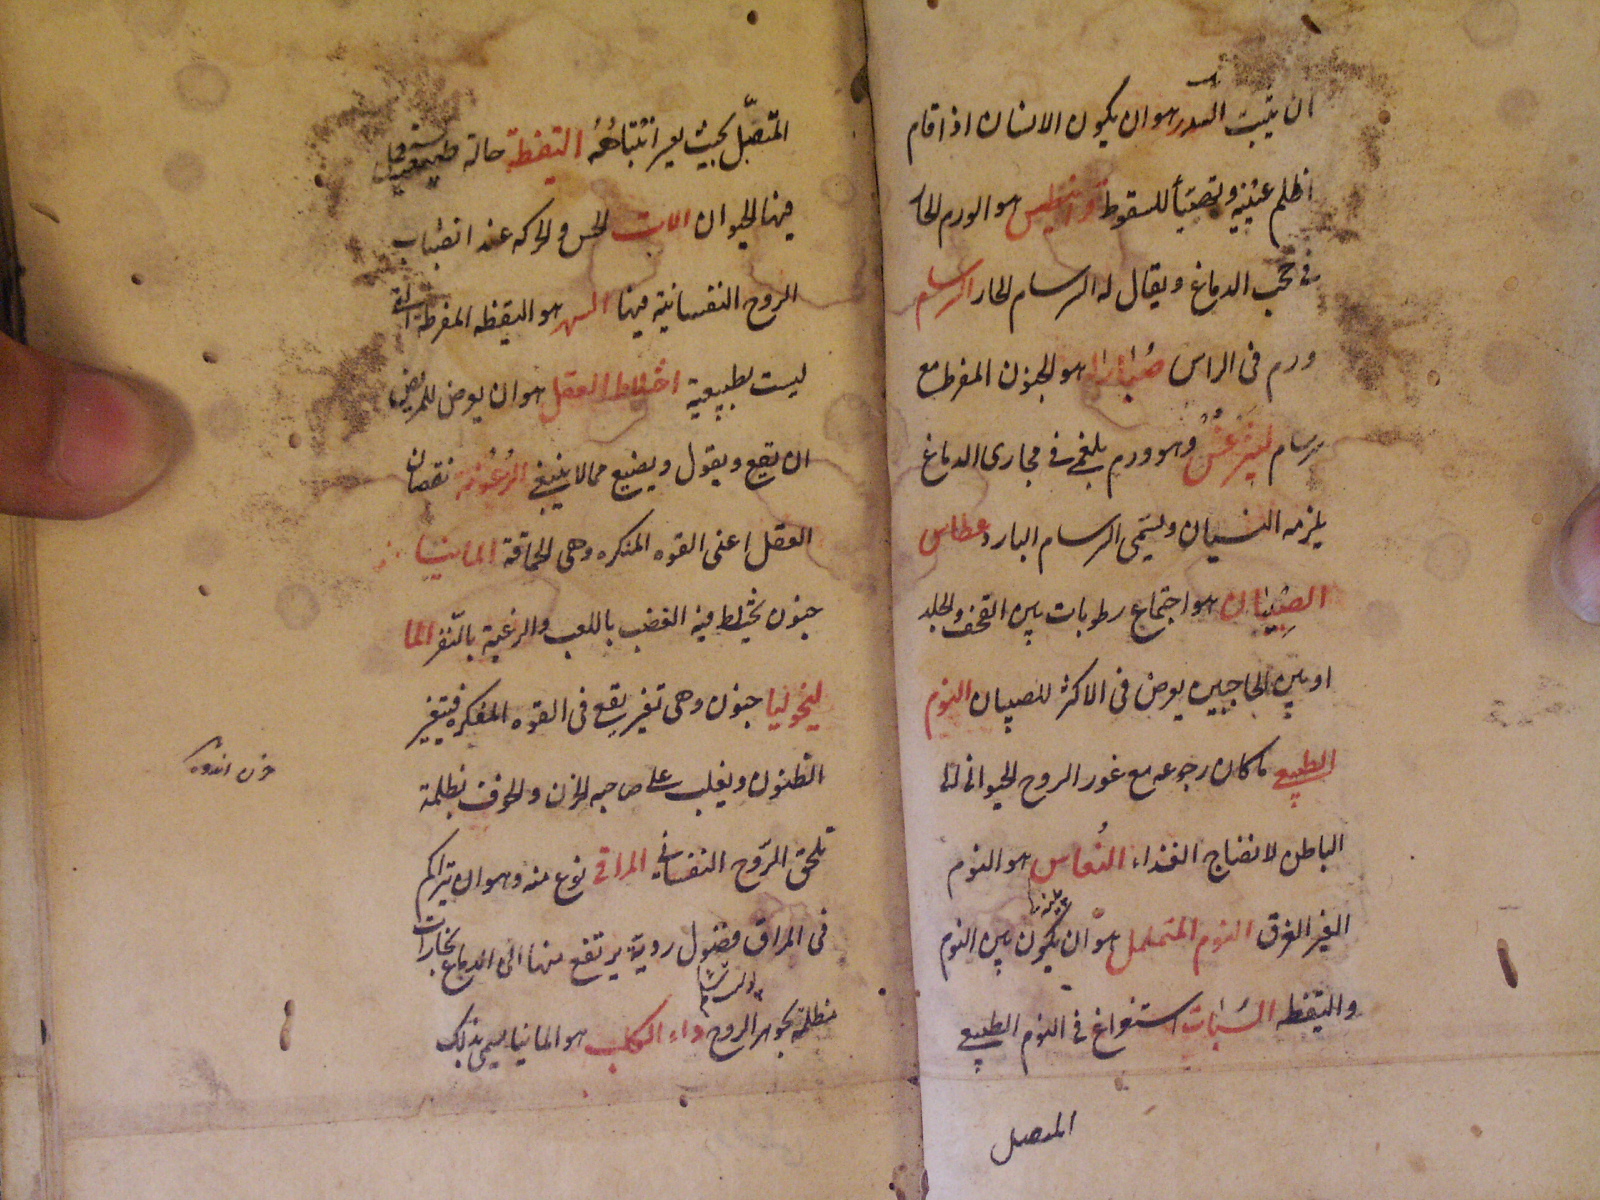 ان يثبت السدر هو ان يكون الانسان اذا قام
اظلم عينيه وتهيّأ للسقوط قرانيطس هو الورم الحار
فى حجب الدماغ ويقال له السرسام الحار السرسام
ورم فى الراس صُبارا هو الجنون المفرط مع
سرسام ليثرغس وهو ورم بلغمى فى مجارى الدماغ
يلزمه النسيان ويسمّى السرسام البارد عطاس
الصبيان هو اجتماع رطوبات بين القحف والجلد
او بين الحاجبين يعرض فى الاكثر للصبيان النوم
الطبيعى ما كان رجوعه مع غور الروح الحيوانى الى
الباطن لانضاج الغذاء النُعاس هو النوم
الغير الغرق النوم المتململ هو ان يكون بين النوم
واليقظه السُبات استغراغ فى النوم الطبيعى
المتصل
المتّصل بحيث يعسر انتباهُهُ اليقظة حالة طبيعية
فيها الحيوان الات الحس والحركه عند انصباب
الروح النفسانية فيها السهر هو اليقظه المفرطة التى
ليست بطبيعية اختلاط العقل هو ان يعرض للمريض
ان يقع ويقول ويصنع مما لا ينبغى الرُعُونة نقصان
العقل اعنى القوه المفكره وهى الحماقة المانيا
جنون يختلط فيه الغضب باللعب والرغبة بالنّفر الما
ليخوليا جنون وهى تغير يقع فى القوه المفكره فيتغير
الظنون ويغلب على صاحبه الحزن والخوف بظلمة
حزن اندوه
تلحق الرّوح النفسانى المراقى نوع منه وهو ان يتراكم
فى المراق فضول رديّة يرتفع منها الى الدماغ بخارات
مظلمة بجوهر الروح داء الكلب هو المانيا يسمى بذلك